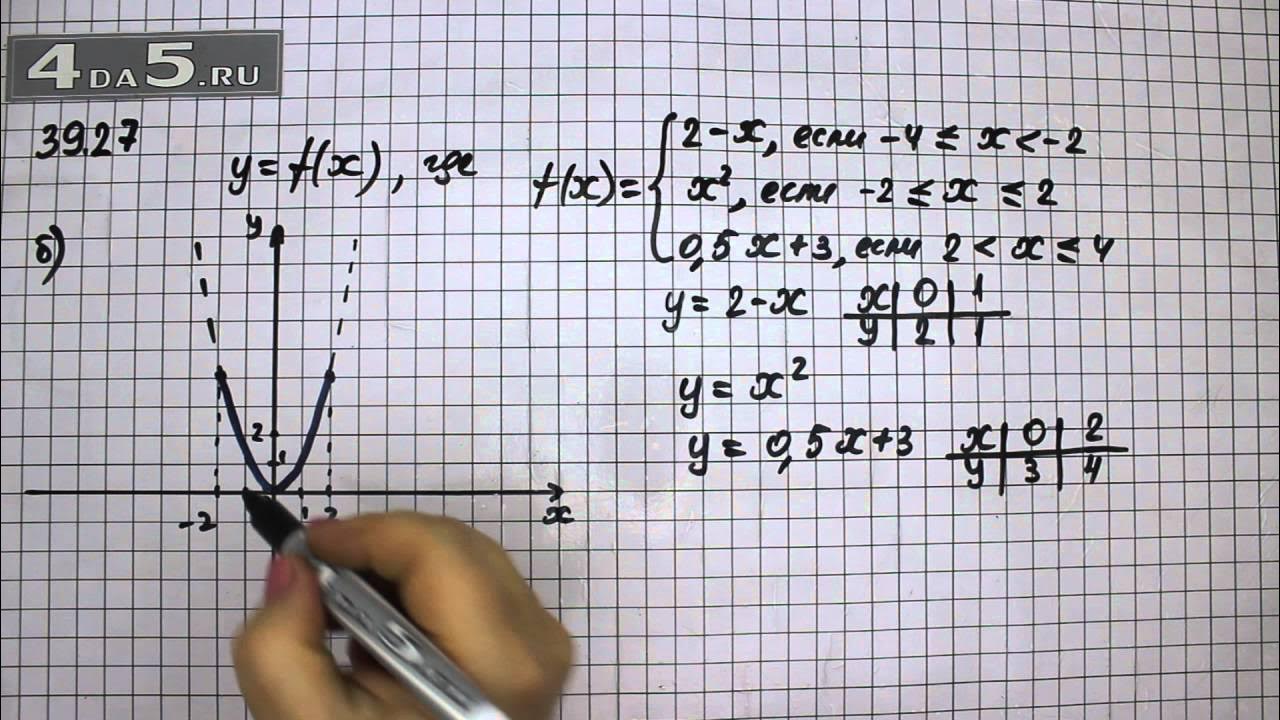 4DA5.RU
39.27
y = f(x), где
f(x) = { 2 - x, если -4 ≤ x < -2
x², если -2 ≤ x ≤ 2
0,5x + 3, если 2 < x ≤ 4
б)
y
y = 2 - x
x | 0 | 1
y | 2 | 1
y = x²
y = 0,5x + 3
x | 0 | 2
y | 3 | 4
2
1
-2
1 2
x